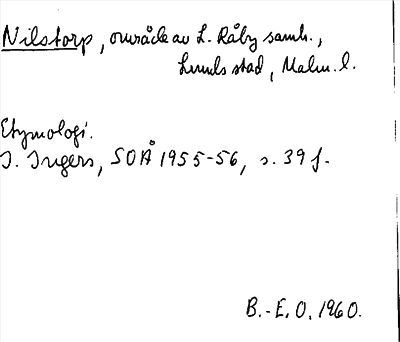 Nilstorp, område av L. Råby samh.,
Lunds stad, Malm. l.
Etymologi.
I. Ingers, SOÅ 1955-56, s. 39 f.
B.-E. O. 1960.